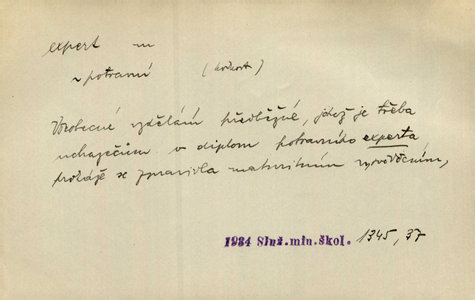 expert m
~ potravní (ložkost)
Všeobecné vzdělání předběžné, jehož je třeba
uchazečům o diplom potravního experta
prokáže se zpravidla maturitním vysvědčením,
1934 Služ.min.škol. 1345, 37